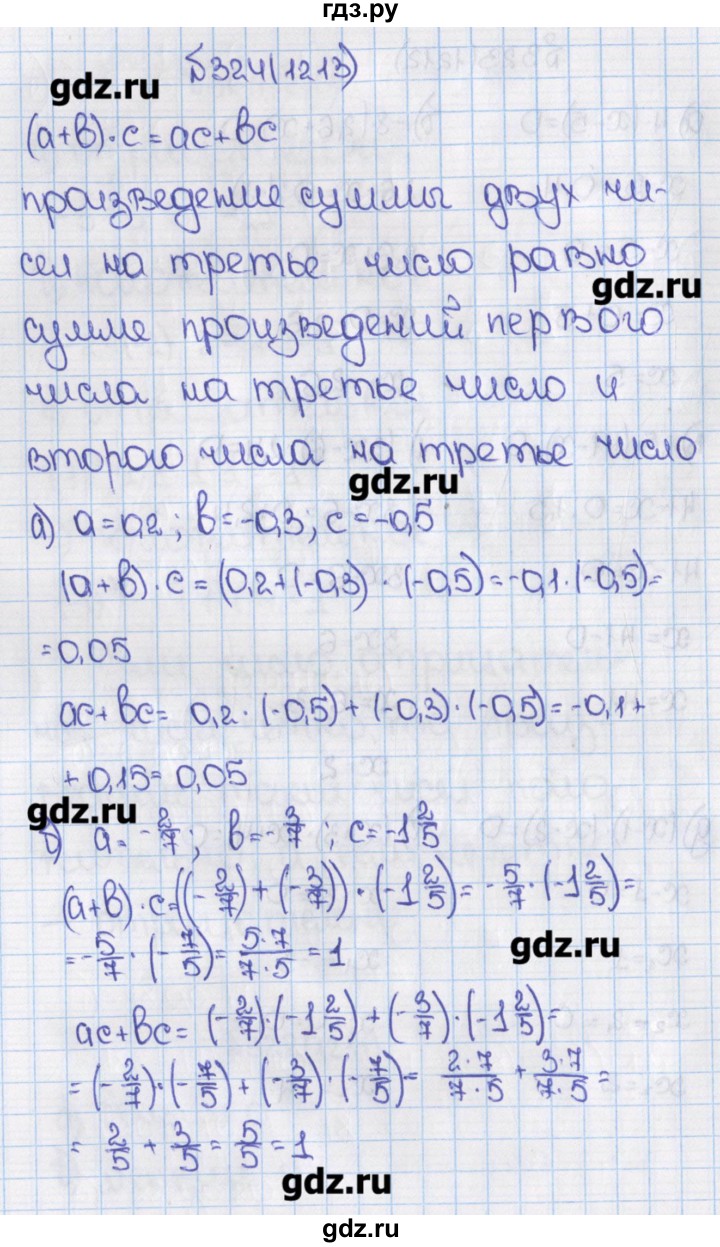 гдз.ру
№324(1213)
gdz.ru
(а+в)·с=ас+вс
произведение суммы двух чи-
сел на третье число равно
gdz.ru
сумме произведений первого
числа на третье число и
второго числа на третье число
gdz.ru
а) а=0,2; в=-0,3; с=-0,5
(а+в)·с=(0,2+(-0,3)·(-0,5)=-0,1·(-0,5)=
=0,05
ас+вс= 0,2·(-0,5)+(-0,3)·(-0,5)=-0,1+
+0,15=0,05
gdz.ru
б) а=-2/7; в=-3/7; с=-1 2/5
(а+в)·с=((-2/7)+(-3/7))·(-1 2/5)=-5/7·(-1 2/5)=
gdz.ru
=-5/7·(-7/5)=5·7/7·5=1
ас+вс=(-2/7)·(-1 2/5)+(-3/7)·(-1 2/5)=
=(-2/7)·(-7/5)+(-3/7)·(-7/5)=2·7/7·5+3·7/7·5=
=2/5+3/5=5/5=1
gdz.ru
gdz.ru